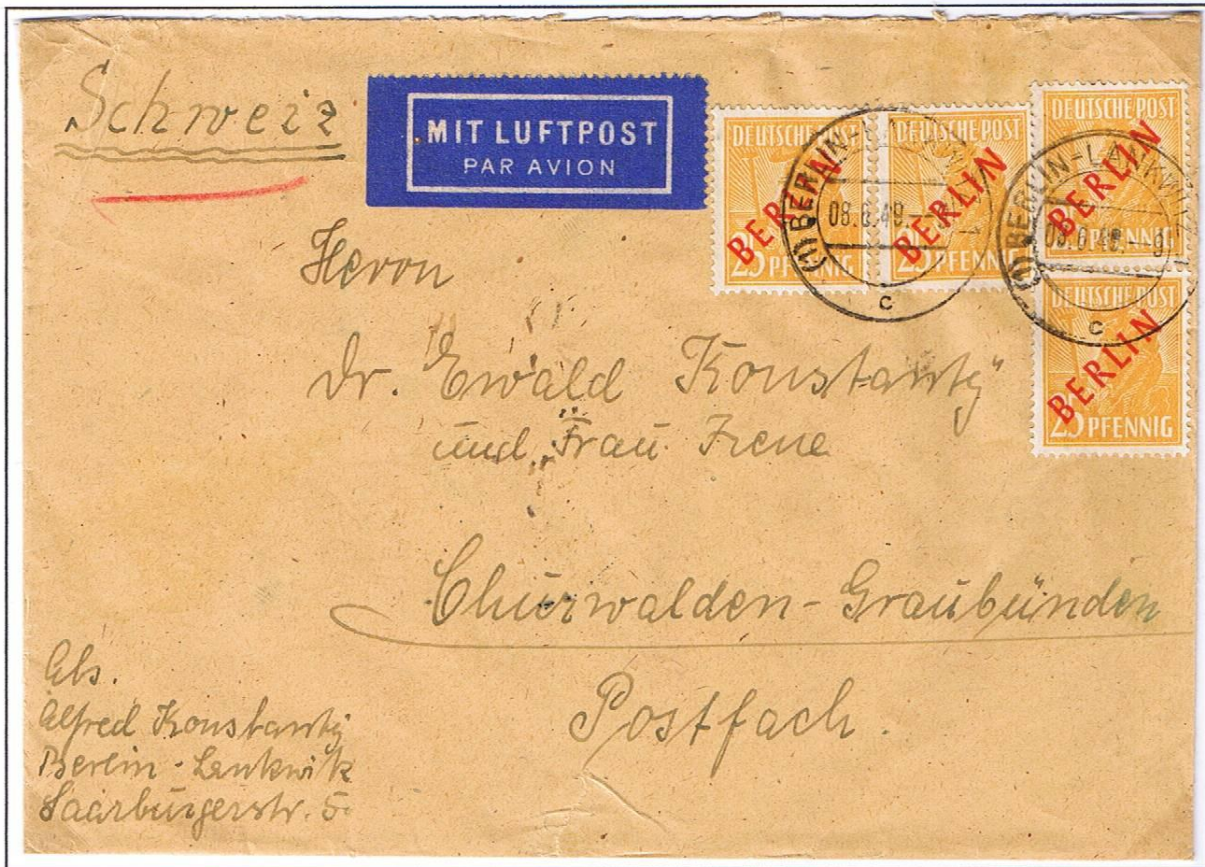 Schweiz
MIT LUFTPOST
PAR AVION
DEUTSCHE POST
BERLIN
25 PFENNIG
DEUTSCHE POST
BERLIN
25 PFENNIG
DEUTSCHE POST
BERLIN
PFENNIG
DEUTSCHE POST
BERLIN
25 PFENNIG
(1) BERLIN-
08.6.49.
c
(1) BERLIN-LANKWITZ
08.6.49.—9
c
Herrn
Dr. Ewald Konstanty
und Frau Irene
Churwalden-Graubünden
Postfach.
Abs.
Alfred Konstanty
Berlin-Lankwitz
Saarburgerstr. 5.